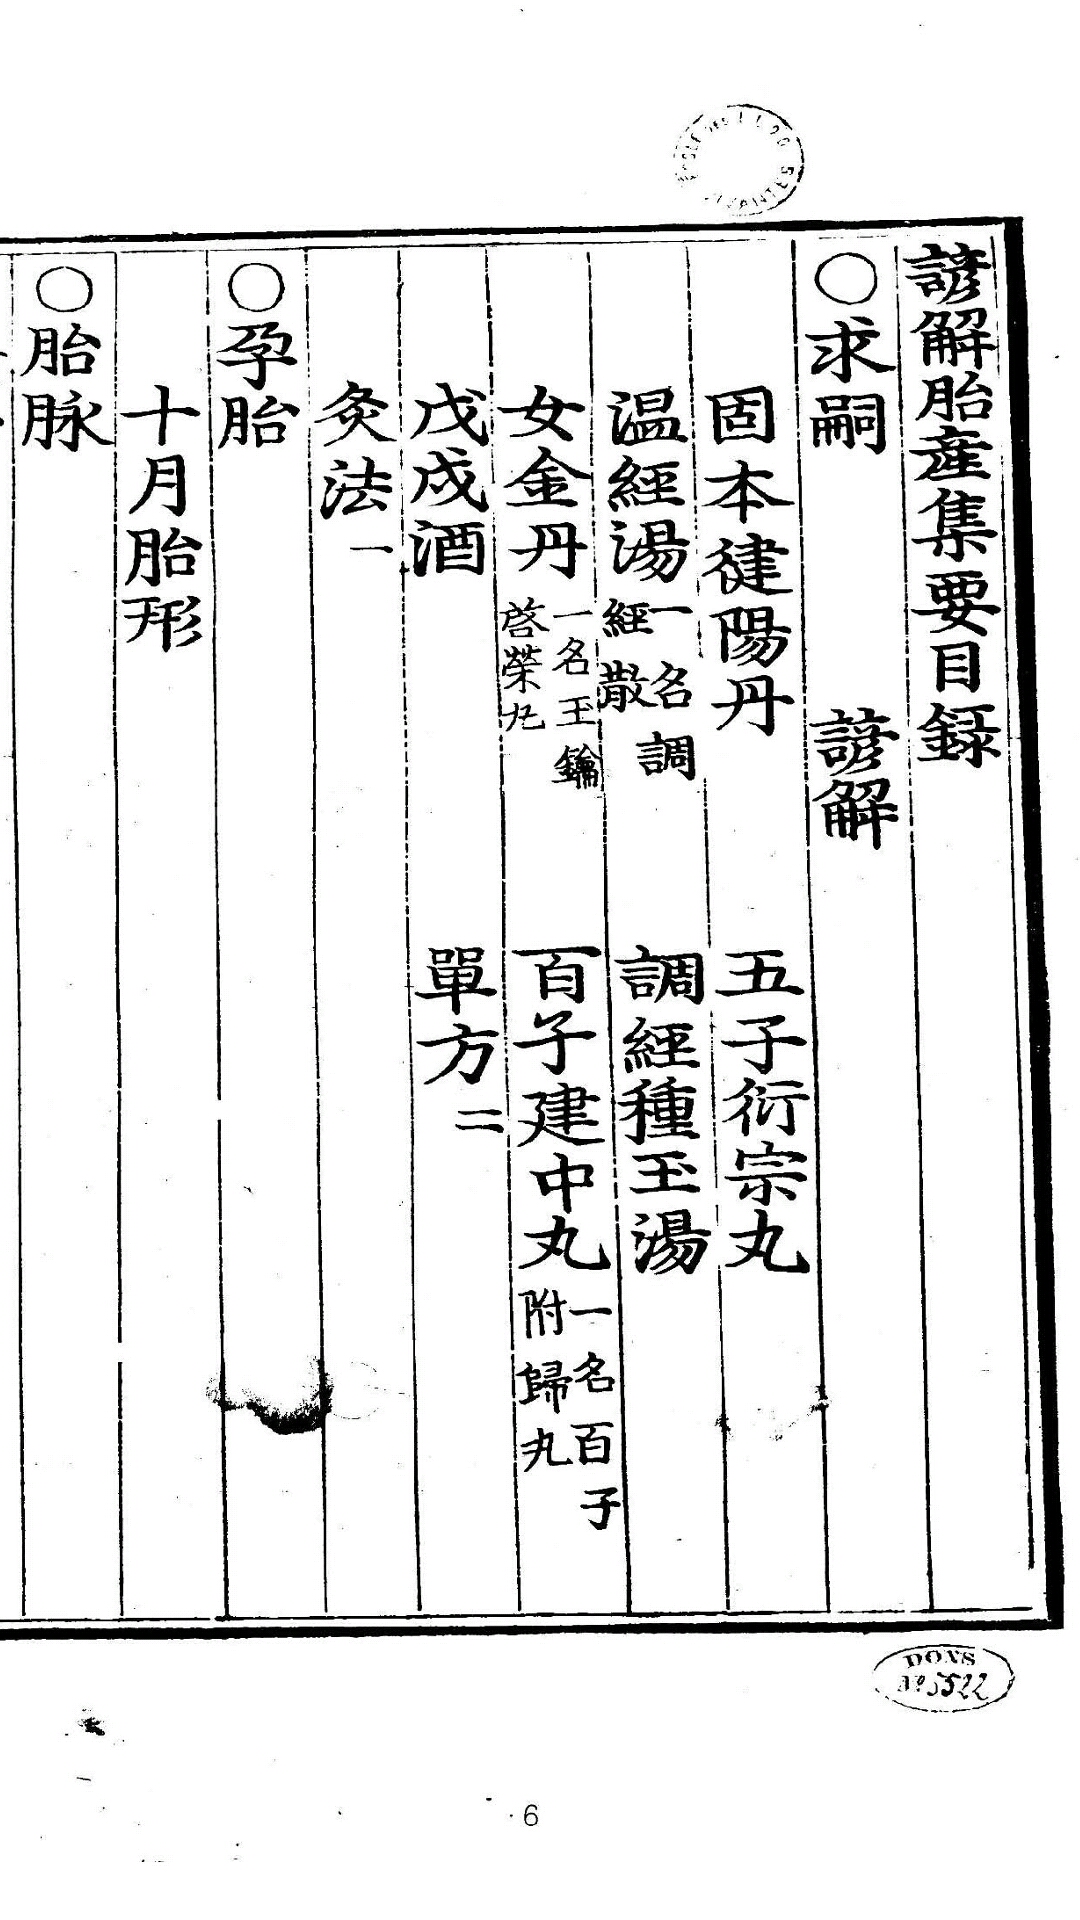 諺解胎産集要目録
○求嗣 諺解
固本徤陽丹 五子衍宗丸
温經湯一名調經散 調經種玉湯
女金丹一名玉鑰啓榮丸 百子建中丸一名百子附歸丸
戊戌酒 單方二
灸法一
○孕胎
十月胎形
○胎脉
DONS
Nº 5522
6